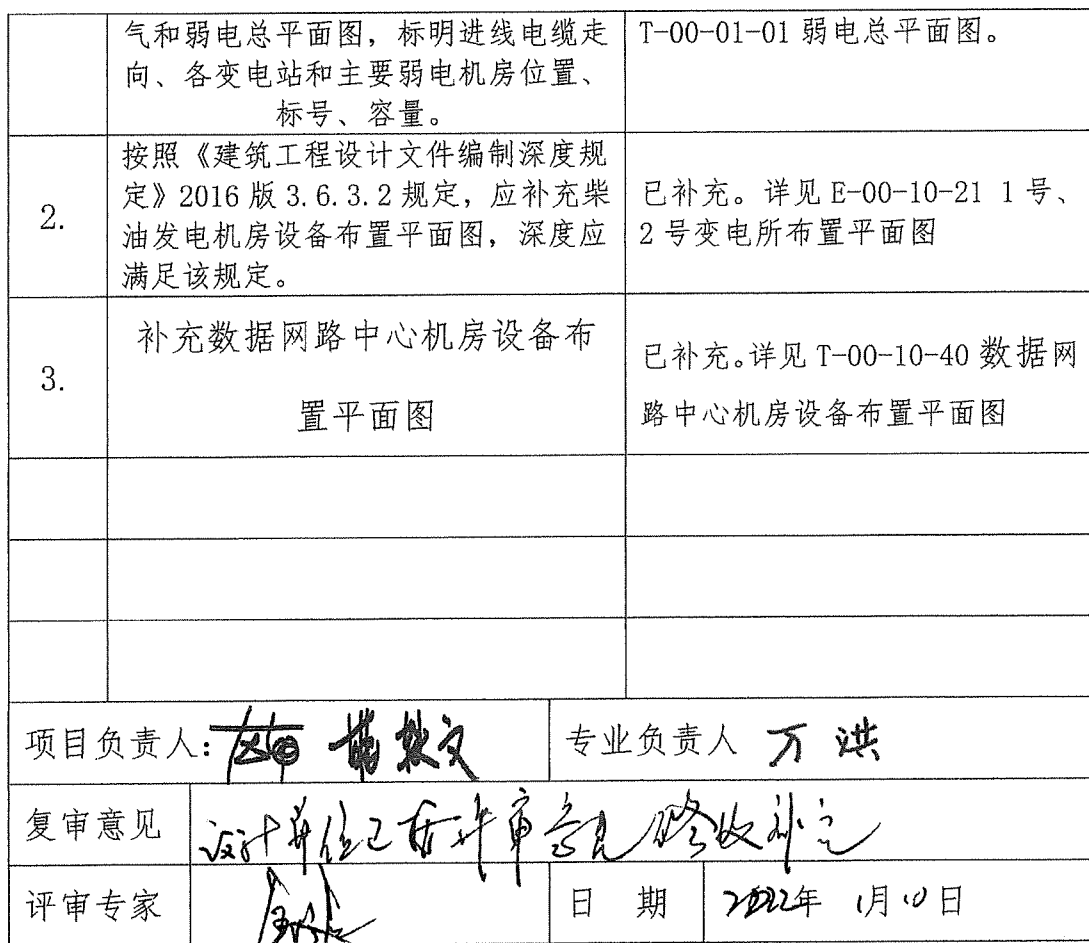 气和弱电总平面图，标明进线电缆走
向、各变电站和主要弱电机房位置、
标号、容量。
T-00-01-01 弱电总平面图。
2.
按照《建筑工程设计文件编制深度规
定》2016 版 3.6.3.2 规定，应补充柴
油发电机房设备布置平面图，深度应
满足该规定。
已补充。详见 E-00-10-21 1 号、
2 号变电所布置平面图
3.
补充数据网路中心机房设备布
置平面图
已补充。详见 T-00-10-40 数据网
路中心机房设备布置平面图
项目负责人：
专业负责人 万洪
复审意见 设计单位已按评审意见修改补充
评审专家
日 期 2022年 1月10日